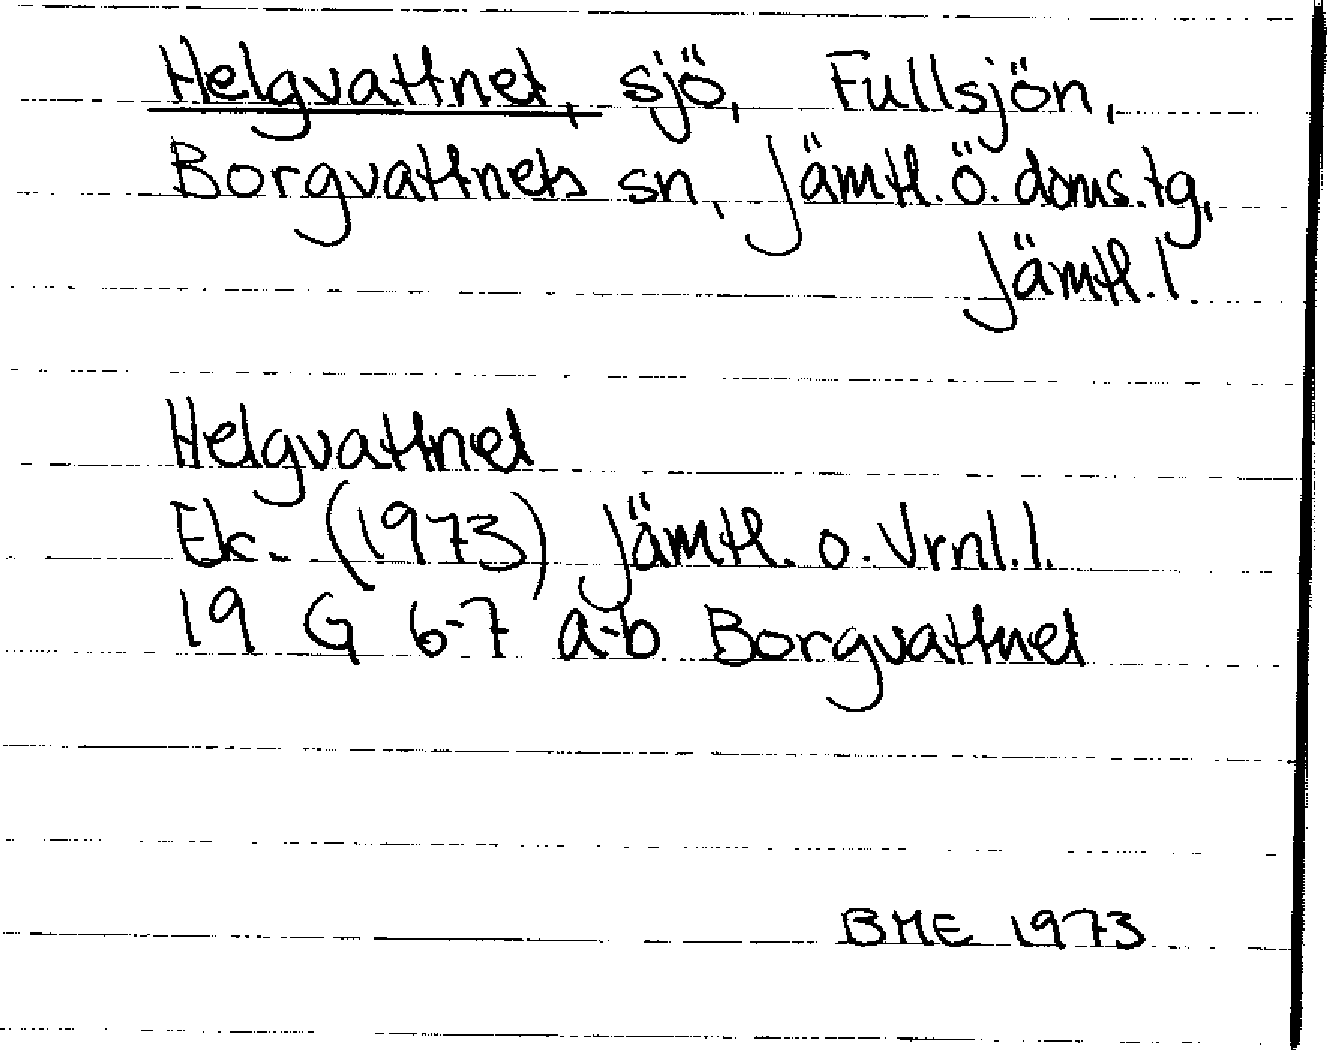 Helgvattnet, sjö, Fullsjön,
Borgvattnets sn, Jämtl.ö.doms.tg,
Jämtl.l.
Helgvattnet
Ek. (1973) Jämtl. o. Vrnl.l.
19 G 6-7 a-b Borgvattnet
BME 1973